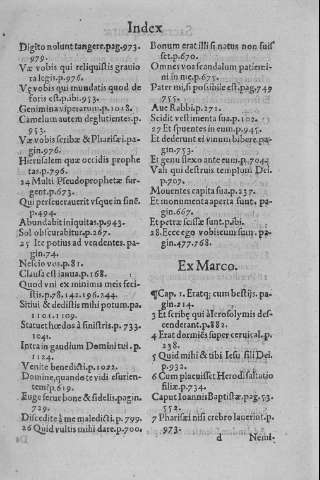 Index
Digito nolunt tangere.pag.973.
979.
Væ vobis qui reliquistis gravio
ra legis.p.976.
Vę vobis qui mundatis quod de
foris est.p.ibi.953.
Genimina viperarum.p.1018.
Camelum autem deglutientes.p.
953.
Væ vobis scribæ & Pharisæi.pa-
gin.976.
Hierusalem quæ occidis prophe
tas.p.796.
24 Multi Pseudoprophetæ sur-
gent.p.673.
Qui perseveraverit vsque in finē.
p.494.
Abundabit iniquitas.p.943.
Sol obscurabitur.p.267.
25 Ite potius ad vendentes. pa-
gin.74.
Nescio vos.p.81.
Clausa est ianua.p.168.
Quod vni ex minimis meis feci-
stis.p.78.142.196.244.
Sitiui & dedistis mihi potum.pa.
1101.1109.
Statuet hœdos à sinistris.p.733.
1041.
Intra in gaudium Domini tui. p.
1124.
Venite benedicti.p.1022.
Domine, quando te vidi esurien-
tem?p.619.
Euge serue bone & fidelis.pagin.
729.
Discedite à me maledicti.p.799.
26 Quid vultis mihi dare.p.700.
Bonum erat illi si natus non fuis
set.p.670.
Omnes vos scandalum patiemi-
ni in me.p.675.
Pater mi, si possibile est.pag.749
755.
Aue Rabbi.p.271.
Scidit vestimenta sua.p.102.
27 Et spuentes in eum.p.945.
Et dederunt ei vinum bibere.pa-
gin.753.
Et genu flexo ante eum.p.704.
Vah qui destruis templum Dei.
p.707.
Mouentes capita sua.p.237.
Et monumenta aperta sunt. pa-
gin.667.
Et petræ scissæ sunt.p.ibi.
28. Ecce ego vobiscum sum. pa-
gin.477.768.
Ex Marco.
¶Cap. 1. Eratq; cum bestijs. pa-
gin.214.
3 Et scribę qui à Ierosolymis des-
cenderant.p.882.
4 Erat dormiēs super ceruical. p.
238.
5 Quid mihi & tibi Iesu fili Dei.
p.932.
6 Cum placuisset Herodi saltatio
filiæ.p.734.
Caput Ioannis Baptistæ.pag.53.
552.
7 Pharisæi nisi crebro lauerint.p.
973.
d Nemi-